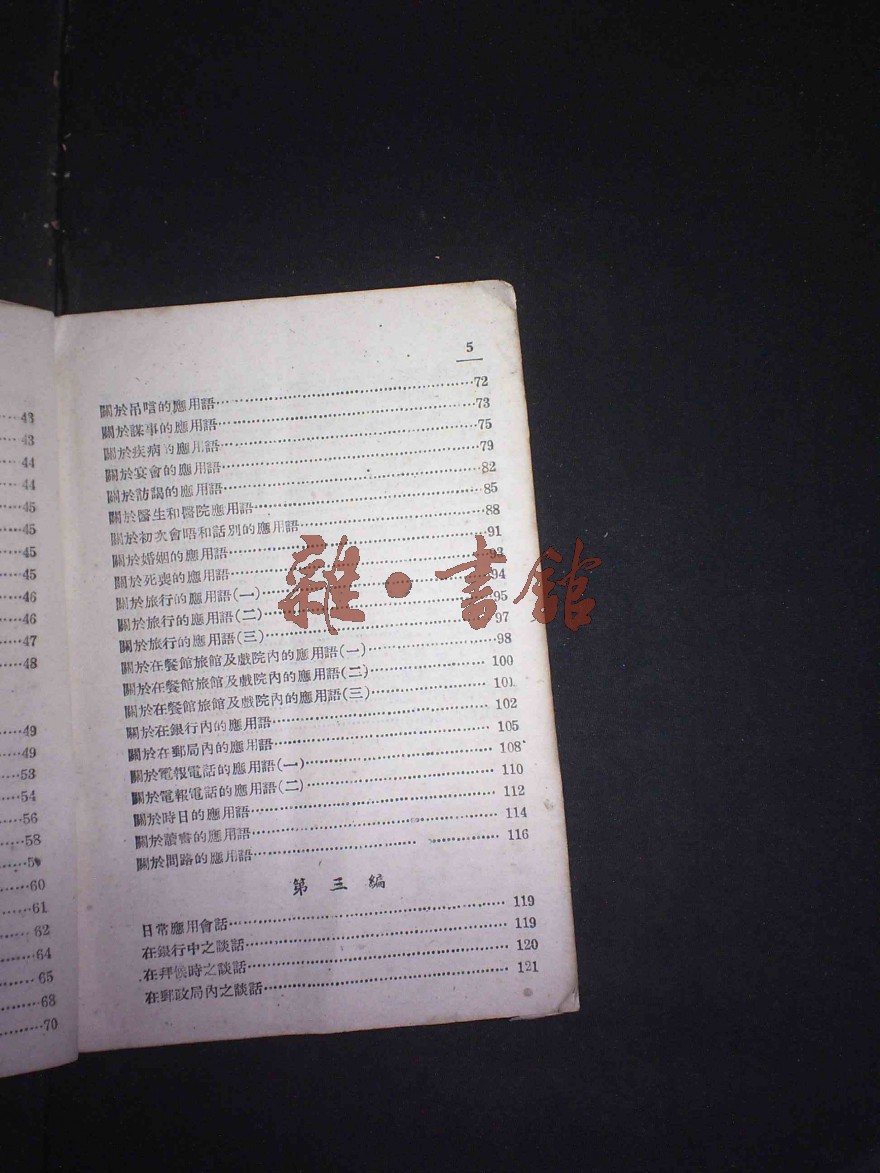 43
43
44
44
45
45
45
45
46
46
47
48
49
49
53
54
56
58
60
61
62
64
65
68
70
5
關於吊唁的應用語……72
關於謀事的應用語……73
關於疾病的應用語……75
關於宴會的應用語……79
關於訪謁的應用語……82
關於醫生和醫院應用語……85
關於初次會晤和話別的應用語……88
關於婚姻的應用語……91
關於死喪的應用語……93
關於旅行的應用語(一)……94
關於旅行的應用語(二)……95
關於旅行的應用語(三)……97
關於在餐館旅館及戲院內的應用語(一)……98
關於在餐館旅館及戲院內的應用語(二)……100
關於在餐館旅館及戲院內的應用語(三)……101
關於在銀行內的應用語……102
關於在郵局內的應用語……105
關於電報電話的應用語(一)……108
關於電報電話的應用語(二)……110
關於時日的應用語……112
關於讀書的應用語……114
關於問路的應用語……116
第三編
日常應用會話……119
在銀行中之談話……119
在拜候時之談話……120
在郵政局內之談話……121
雜·書館